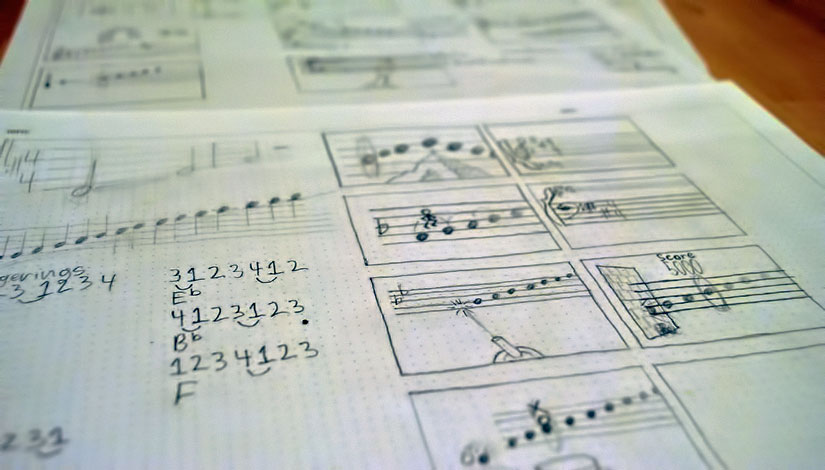 4
4
gerings
3 1 2 3 4
3 1 2 3 4 1 2
E♭
4 1 2 3 1 2 3
B♭
1 2 3 4 1 2 3
F
2 3 1
Score
5000